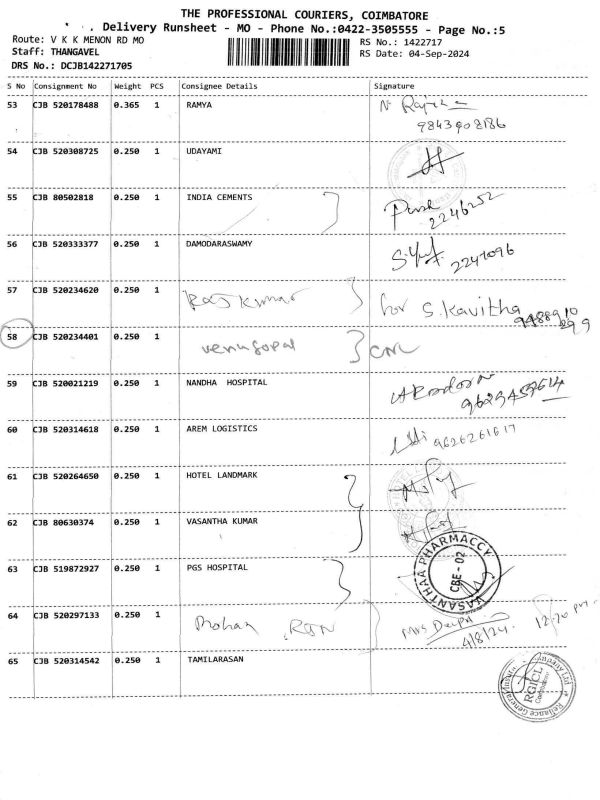 THE PROFESSIONAL COURIERS, COIMBATORE
Delivery Runsheet - MO - Phone No.:0422-3505555 - Page No.:5
Route: V K K MENON RD MO
RS No.: 1422717
Staff: THANGAVEL
RS Date: 04-Sep-2024
DRS No.: DCJB142271705
S No Consignment No Weight PCS Consignee Details Signature
53 CJB 520178488 0.365 1 RAMYA
9843908186
54 CJB 520308725 0.250 1 UDAYAMI
55 CJB 80502818 0.250 1 INDIA CEMENTS
2246252
56 CJB 520333377 0.250 1 DAMODARASWAMY
2247096
57 CJB 520234620 0.250 1 Rajkumar for S.Kavitha
58 CJB 520234401 0.250 1 venugopal
59 CJB 520021219 0.250 1 NANDHA HOSPITAL
60 CJB 520314618 0.250 1 AREM LOGISTICS
9626261617
61 CJB 520264650 0.250 1 HOTEL LANDMARK
62 CJB 80630374 0.250 1 VASANTHA KUMAR
VASANTHAA PHARMACCY
CBE - 02
63 CJB 519872927 0.250 1 PGS HOSPITAL
64 CJB 520297133 0.250 1 Mohan
4/8/24. 12-20 pm
65 CJB 520314542 0.250 1 TAMILARASAN
RGICL
Coimbatore